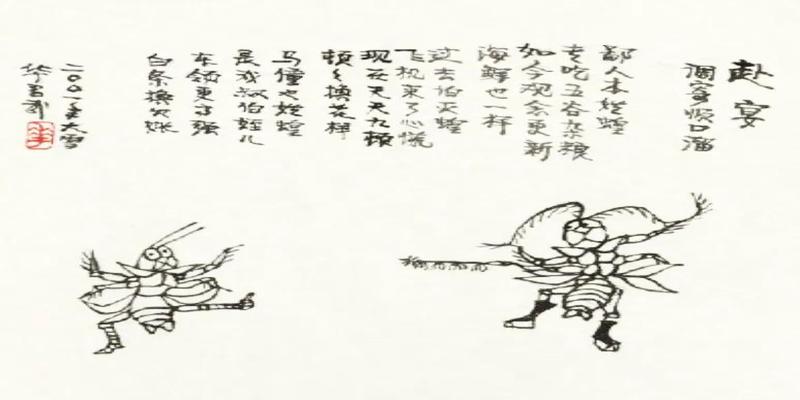 赴宴
调寄顺口溜
鄙人本姓蝗
专吃五谷杂粮
如今观念更新
海鲜也一样
过去怕灭蝗
飞机来了心慌
现在天天九顿
顿々换花样
马僮也姓蝗
是我叔伯侄儿
本领更高强
白条换
二〇〇一年大雪
华君武